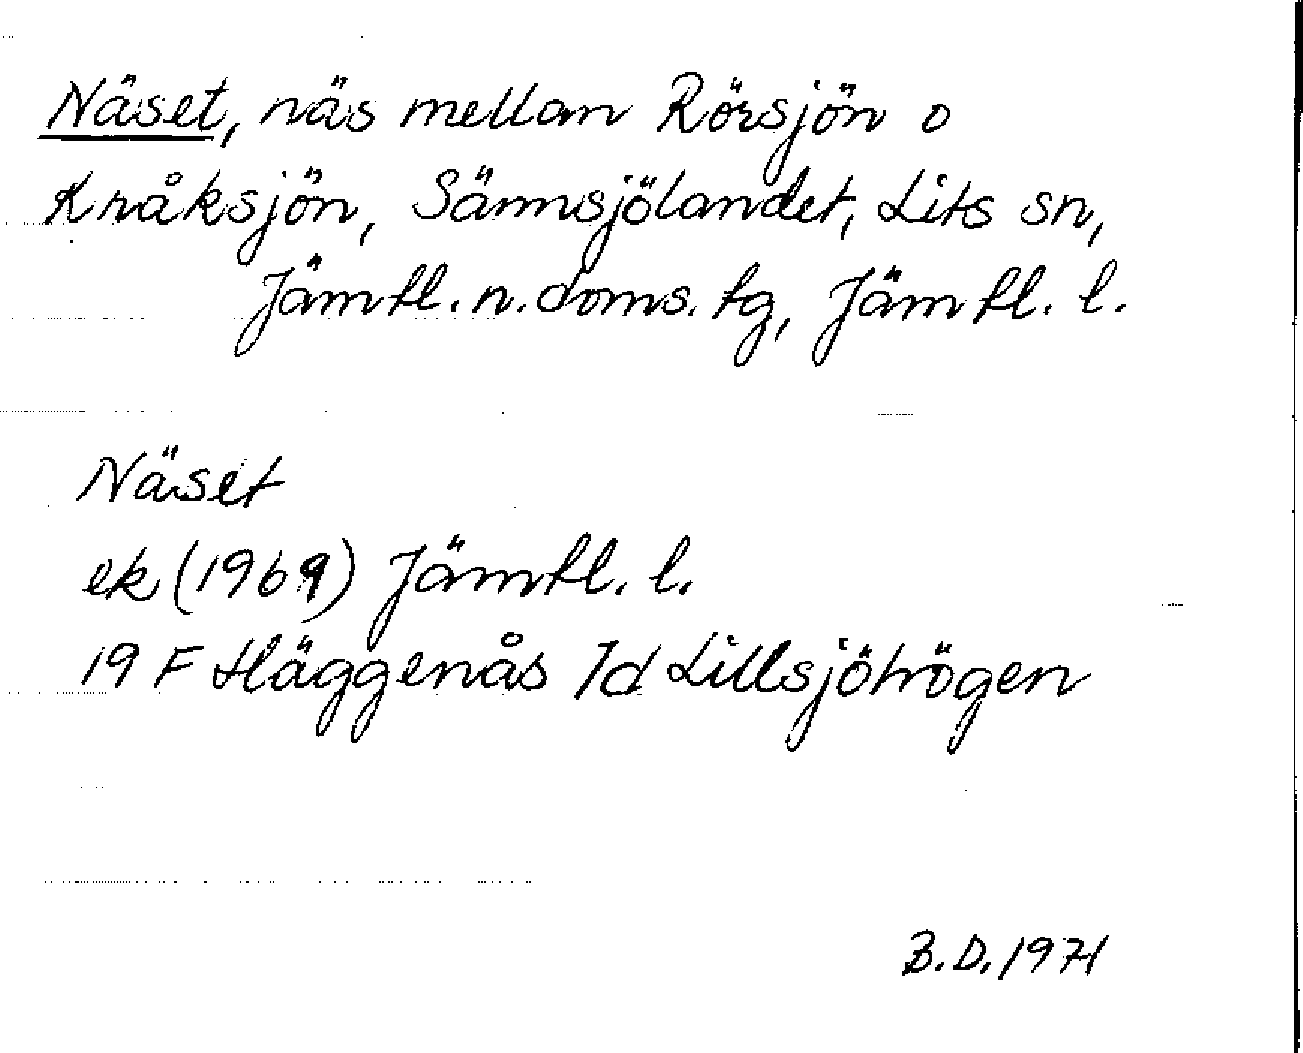 Näset, näs mellan Rörsjön o
Kråksjön, Sännsjölandet, Lits sn,
Jämtl. n. doms. tg, Jämtl. l.
Näset
ek (1969) Jämtl. l.
19 F Häggenås 7d Lillsjöhögen
B.D. 1971